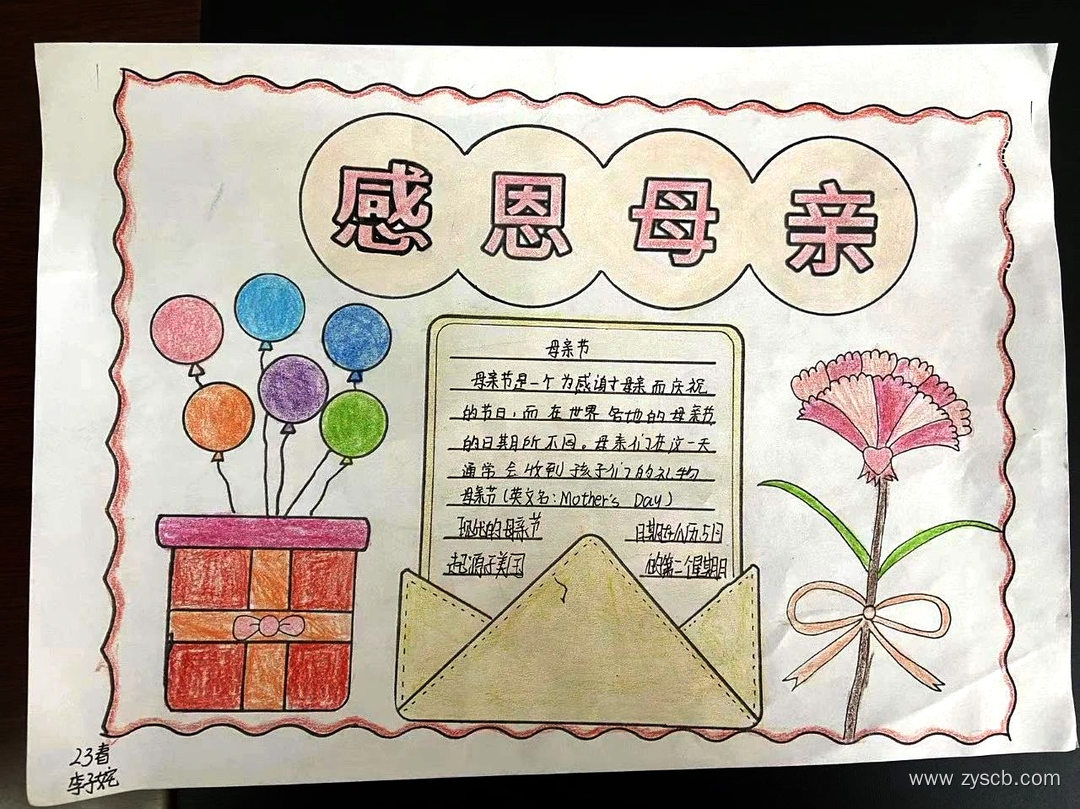 感恩母亲
母亲节
母亲节是一个为感谢母亲而庆祝
的节日,而在世界各地的母亲节
的日期所不同。母亲们在这一天
通常会收到孩子们的礼物
母亲节(英文名:Mother's Day)
现代的母亲节 日期在公历5月
起源于美国 的第二个星期日
23春
李子婉
www.zyscb.com